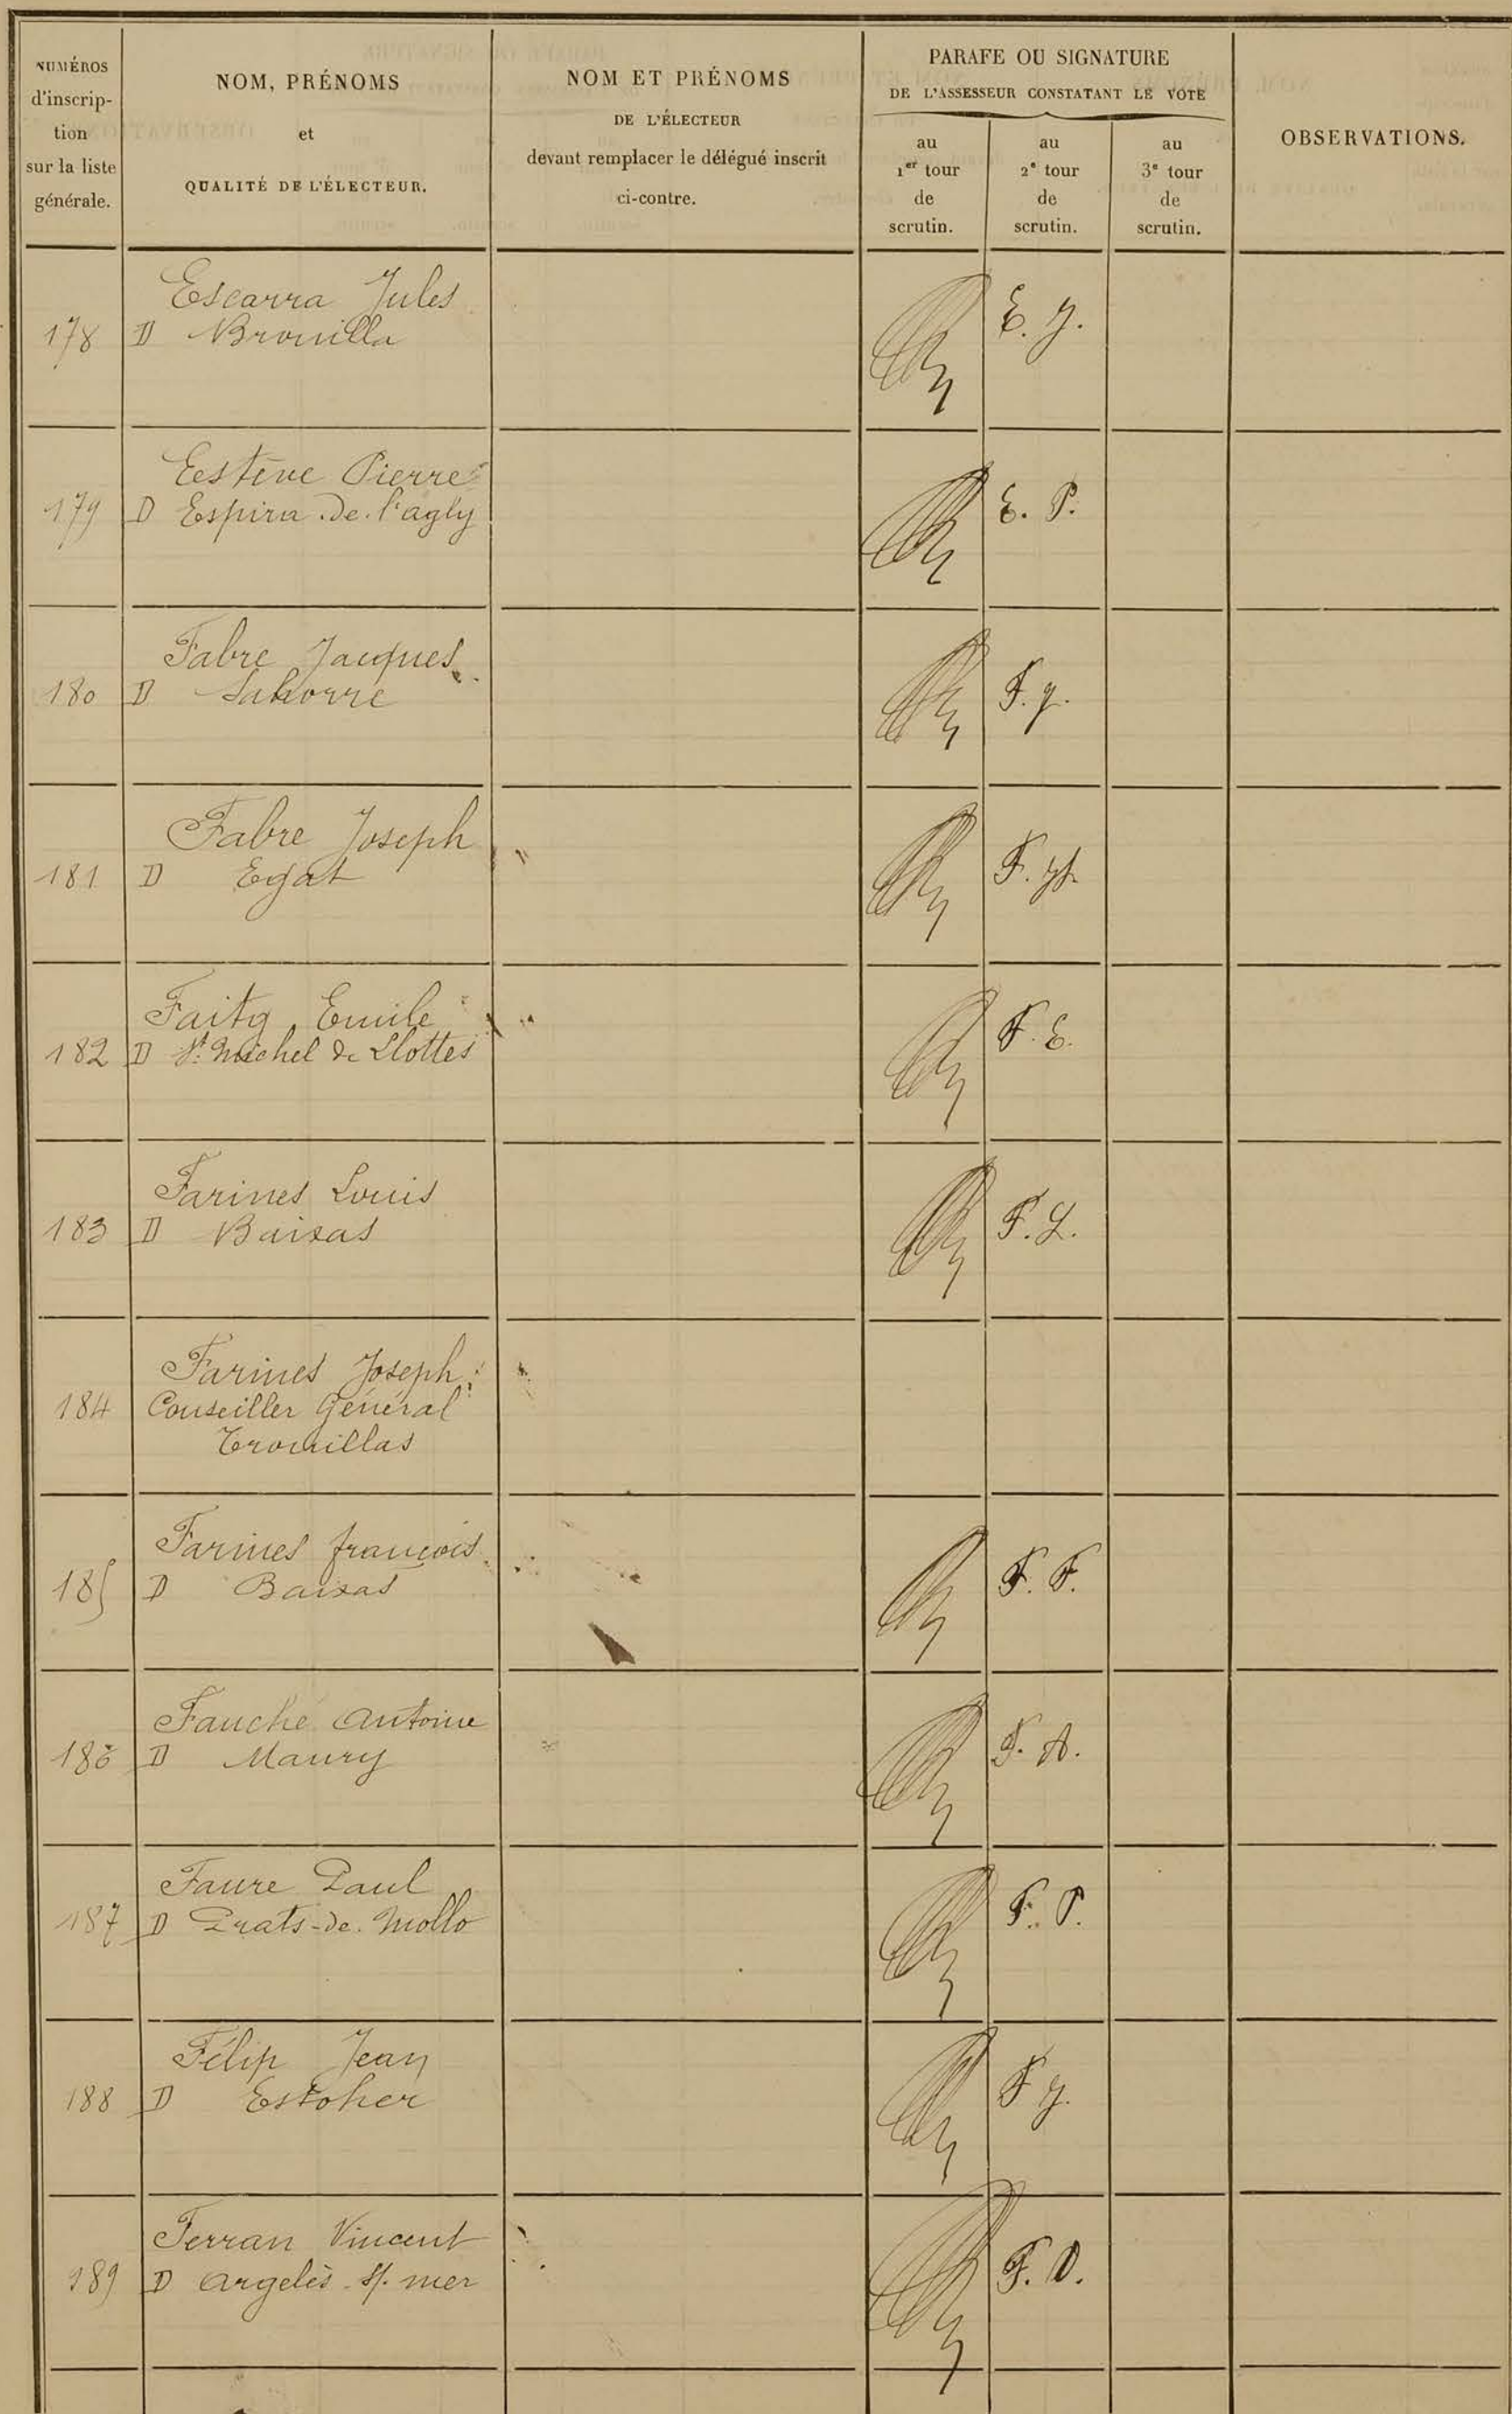 NUMÉROS
d'inscrip-
tion
sur la liste
générale.
NOM, PRÉNOMS
et
QUALITÉ DE L'ÉLECTEUR.
NOM ET PRÉNOMS
DE L'ÉLECTEUR
devant remplacer le délégué inscrit
ci-contre.
PARAFE OU SIGNATURE
DE L'ASSESSEUR CONSTATANT LE VOTE
au
1er tour
de
scrutin.
au
2e tour
de
scrutin.
au
3e tour
de
scrutin.
OBSERVATIONS.
Escarra Jules
178 D Brouilla E. J.
Estève Pierre
179 D Espira de l'agly E. P.
Fabre Jacques
180 D Sahorre F. J.
Fabre Joseph
181 D Egat F. Jh
Faitg Emile
182 D St. Michel de Llottes F. E.
Farines Louis
183 D Baixas F. L.
Farines Joseph
184 Conseiller Général
Trouillas
Farines françois
185 D Baixas F. F.
Fauché Antoine
186 D Maury F. A.
Faure Paul
187 D Prats-de-Mollo F. P.
Félip Jean
188 D Estoher F J.
Ferran Vincent
189 D Argelès s/. mer F. V.